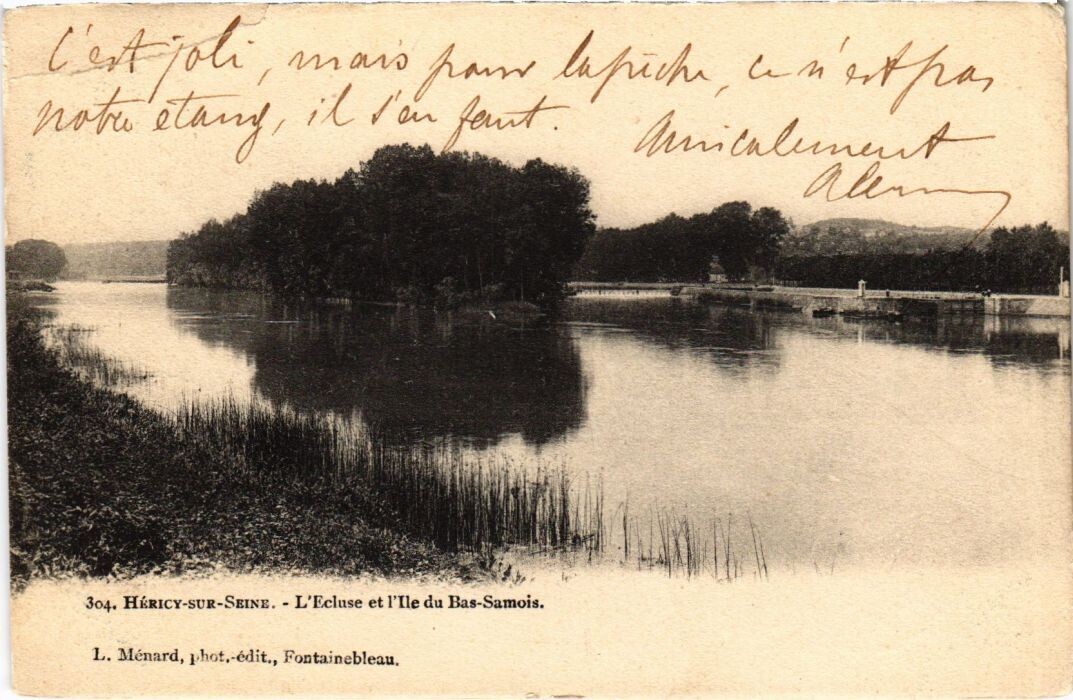 C'est joli, mais pour la pêche, ce n'est pas
notre étang, il s'en faut. Amicalement
304. HÉRICY-SUR-SEINE. - L'Ecluse et l'Ile du Bas-Samois.
L. Ménard, phot.-édit., Fontainebleau.